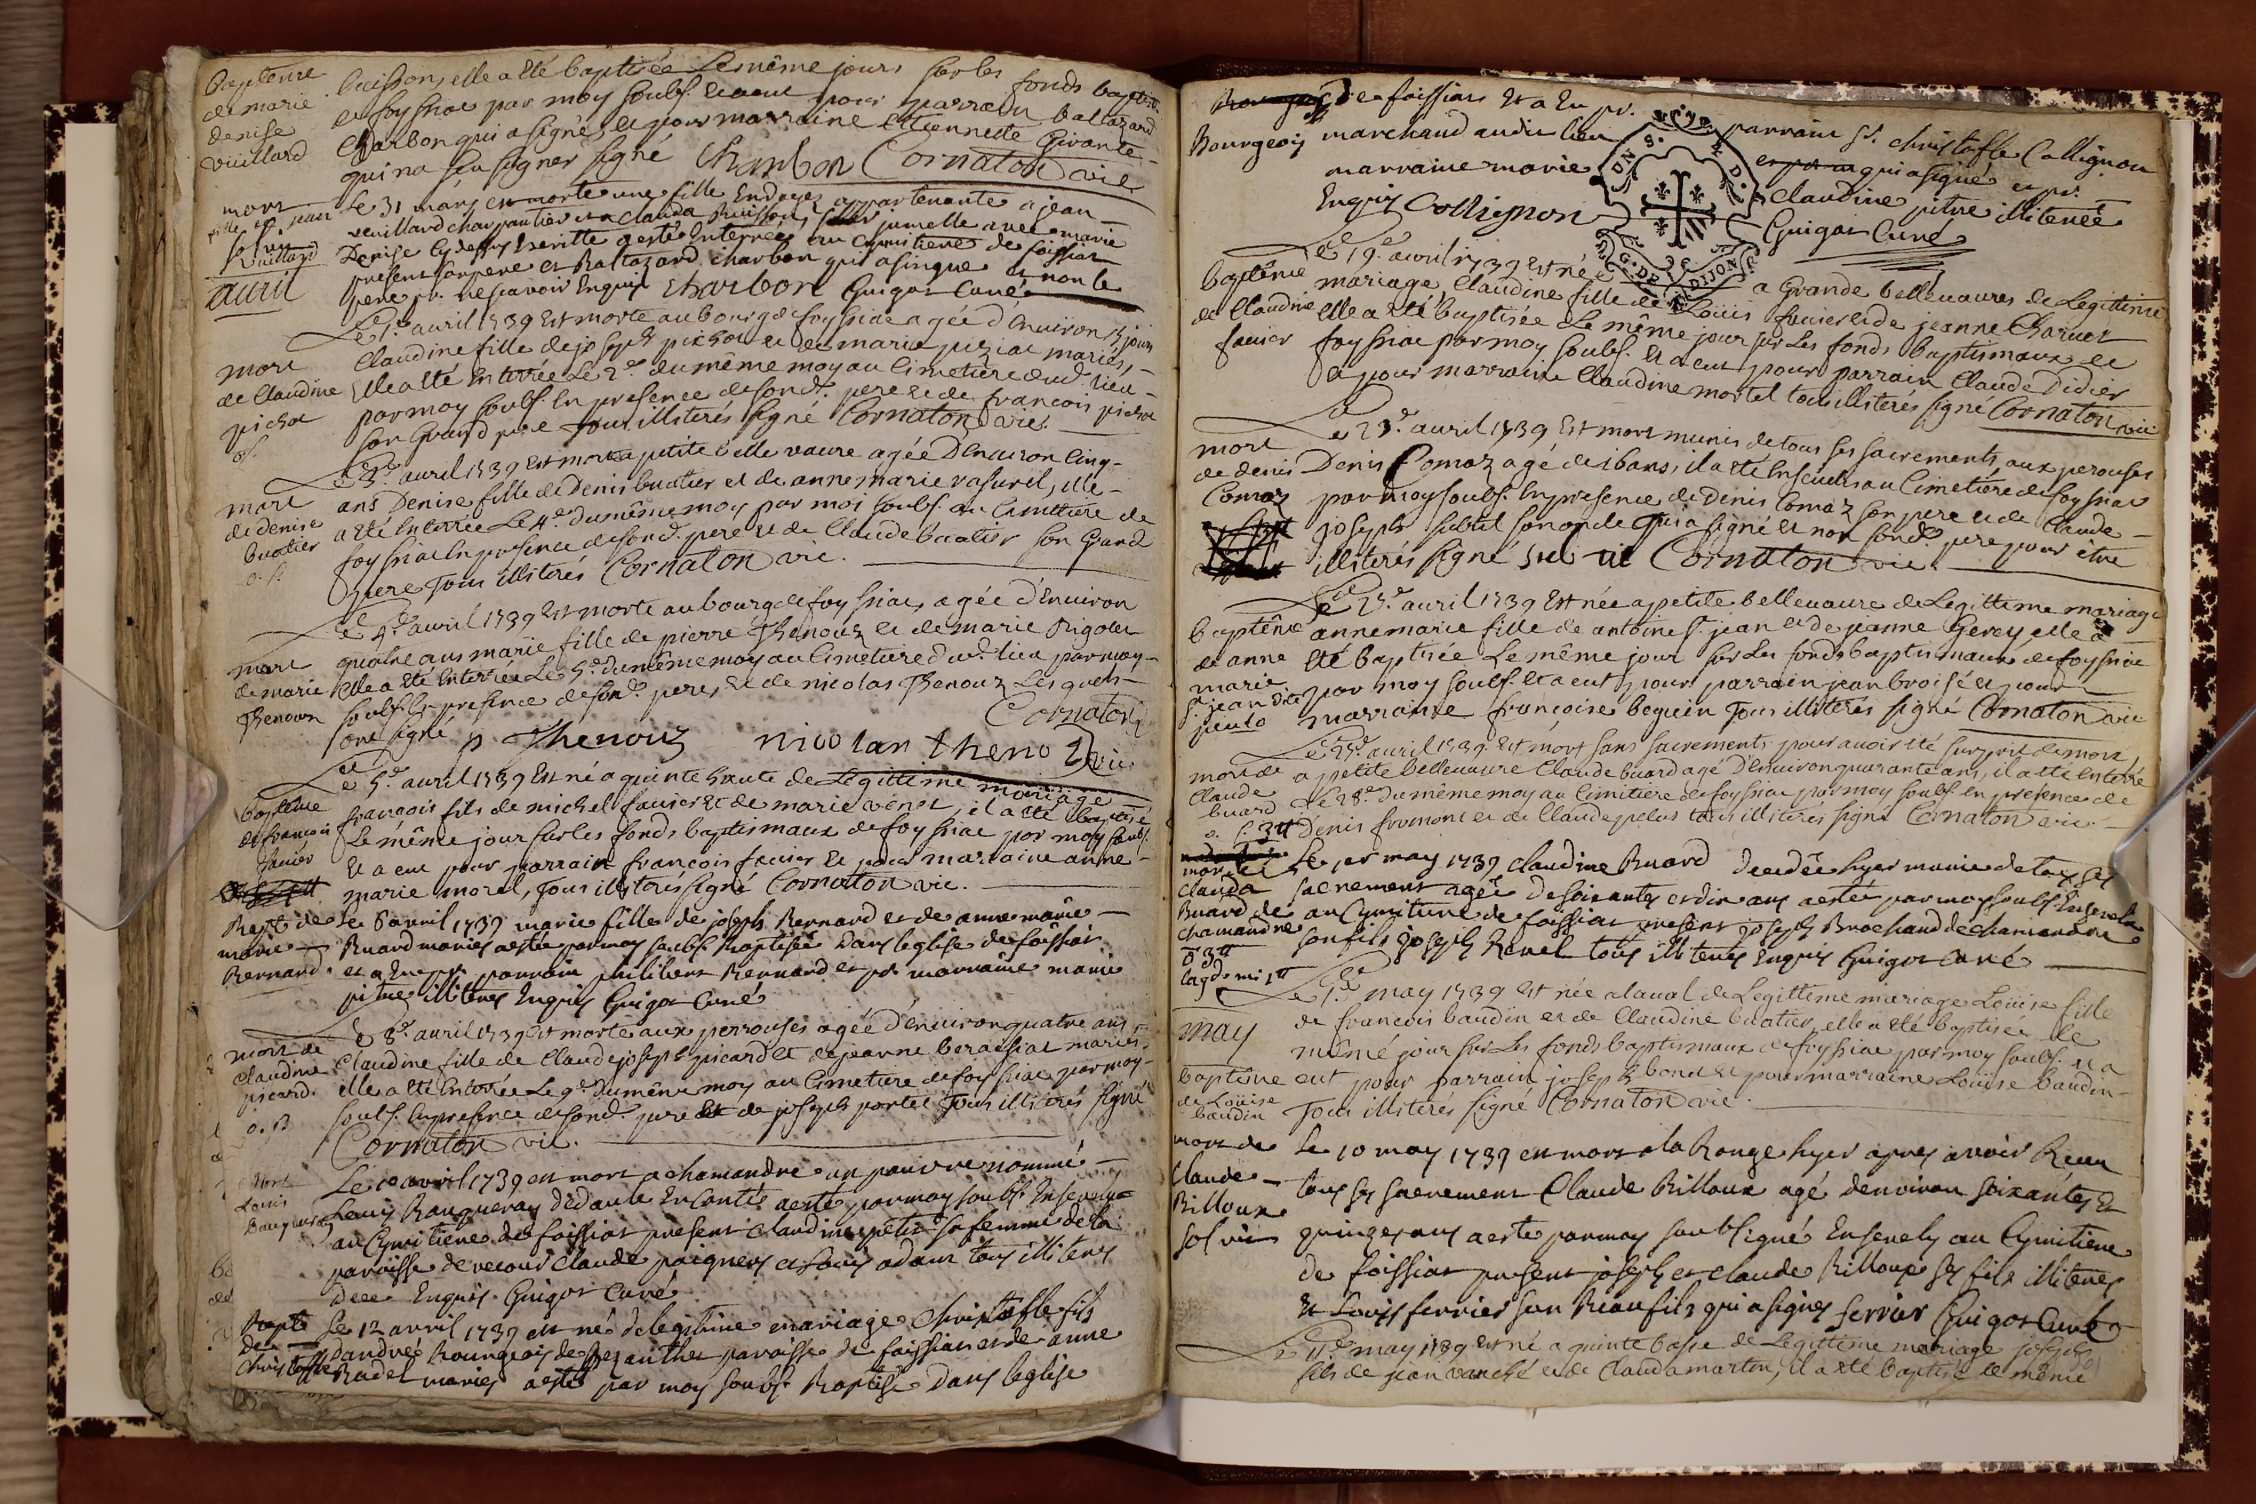 Baptême
de marie
denise
vuillard
buisson, elle a été baptisée le même jour sur les fonds bapt.
de foyssiac par moy soubs. et a eut pour parrain Baltazard
Charbon qui a signé, et pour marraine Etiennette Girante
qui n'a sçu signer signé Charbon Cornaton vic
mort
vuillard
Le 31 mars est morte une fille Endoyée appartenante a jean
vuillard charpantier et a clauda Buisson, sœur jumelle avec marie
Denise cy dessus Escritte a esté Enterrée au Cymitiere de foissiat
present son pere et Baltazard charbon qui a singné et non le
pere pr. ne sçavoir Enquis Charbon Guigot Curé
auril
mort
de Claudine
pichot
Le 1.er auril 1739 Est morte au bourg de foyssiac agée d'Enuiron jours
Claudine fille de joseph pichot et de marie puziac mariés,
Elle a été Enterrée Le 2.e du même moy au Cimetiere dud. lieu
par moy soubs. En presence de sond. pere et de francois pichot
son Grand pere tous illiterés signé Cornaton vic.
mort
de denise
buatier
Le 3.e auril 1739 Est morte a petite belle vaure agée D'Enuiron Cinq
ans Denise fille de Denis buatier et de anne marie vasurel, elle
a été Enterrée Le 4.e du même moy par moi soubs. au Cimetiere de
foyssiac En presence de sond. pere et de Claude buatier son Grand
pere Tous illiterés Cornaton vic.
mort
de marie
Thenoux
Le 4.e auril 1739 Est morte au bourg de foyssiac, agée d'Enuiron
quatre ans marie fille de pierre Thenouz et de marie Rigolet
Elle a été Enterrée Le 5.e du même moy au Cimetiere dud. lieu par moy
soubs. En presence de sond. pere, et de nicolas Thenouz Lesquels
ont signé p Thenouz nicolan thenoz Cornaton vic
baptême
de françois
favier
Le 5.e auril 1739 Est né a quinte haute de Legittime mariage
françois fils de michel favier et de marie venet, il a été baptisé
Le même jour sur les fonds baptismaux de foyssiac par moy soubs.
Et a eut pour parrain françois favier et pour marraine anne
marie morel, tous illiterés signé Cornaton vic.
Bapt. de
marie
Bernard
Le 6 avril 1739 marie fille de joseph Bernard et de anne marie
Buard mariés a esté par moy soubs. Baptisée Dans leglise de foissiat
et a Eu pr. parrain philibert Bernard et pr. marraine marie
pitre illiteres Enquis Guigot Curé
mort de
claudine
picard.
Le 8.e auril 1739 est morte aux perrouses agée d'enuiron quatre ans
Claudine fille de Claude joseph picard et de jeanne beraissiat mariés,
elle a été Enterrée Le 9.e du même moy au Cimetiere de foyssiac par moy
soubs. En presence de sond. pere et de joseph portet Tous illiterés signé
Cornaton vic.
Mort
Louis
Le 10 avril 1739 est mort a chamandre un pauvre nommé
Louis Banqueray a esté par moy soubs. Ensevely
au Cymitiere de foissiat present claudine petit sa femme de la
paroisse de Claude paignery et Louis adam tous illiteres
Enquis. Guigot Curé
Bapte
De
Christofle
Le 12 avril 1739 est né de legitime mariage Christofle fils
Dandre Bourgeois de paroisse de foissiat et de anne
Badel mariés a esté par moy soubs. Baptisé Dans leglise
Bourgeois
de foissiat Et a Eu pr. parrain Sr. christofle Collignon
marchand audit lieu qui a signé et pr.
marraine marie Claudine pitre illiterée
Enquis Collignon Guigot Curé
DNS.
D.
G. DE DIJON
baptême
de Claudine
favier
Le 19.e auril 1739 Est née a Grande belleuaures de Legittime
mariage, Claudine fille de Loüis favier et de jeanne Charnet
elle a été baptisée Le même jour sur Les fonds baptismaux de
foyssiac par moy soubs. Et a eut pour parrain Claude Didier
et pour marraine Claudine mortel tous illiterés signé Cornaton vic
mort
de denis
Comaz
Le 23.e auril 1739 Est mort munis de tous ses sacrements, aux perouses
Denis Comaz agé de 16 ans, il a été Enseueli au Cimetiere de foyssiac
par moy soubs. En presence de Denis Comaz son pere et de Claude
joseph subtil son oncle qui a signé et non sond. pere pour être
illiterés signé Cornaton vic.
baptême
de anne
marie
st. jean dit
Le 23.e auril 1739 Est née a petite belleuaure de Legittime mariage
anne marie fille de antoine st. jean et de jeanne Gerey elle a
été baptisée Le même jour sur Les fonds baptismaux de foyssiac
par moy soubs. Et a eut pour parrain jean broisé et pour
marraine françoise beguin Tous illiterés signé Cornaton vic
mort de
Claude
buard
Le 27.e auril 1739. Est mort sans sacrements pour auoir été surpris de mort,
a petite belleuaure Claude buard agé D'Enuiron quarante ans, il a été Enterré
Le 28.e du même moy au Cimitiere de foyssiac par moy soubs. en presence de
Denis fromont et de Claude pelus tous illiterés signé Cornaton vic.
mort de
Clauda
Buard de
chamandre
Le 1er may 1739 claudine Buard Decedée hyer munie de tous ses
sacrement agée de soixante et dix ans a esté par moy soubs. Ensevely
au Cymitiere de foissiat present joseph Brochand de chamandre
son fils joseph Revel tous illiteres Enquis Guigot Curé
may
baptême
de Loüise
baudin
Le 1.er may 1739 Est née a laual de Legittime mariage Loüise fille
de francois baudin et de Claudine buatier, elle a été baptisée le
même jour sur Les fonds baptismaux de foyssiac par moy soubs. et a
eut pour parrain joseph bondet et pour marraine Loüise baudin
Tous illiterés signé Cornaton vic.
mort de
Claude
Billoux
Le 10 may 1739 est mort a la Ronge hyer apres avoir Receu
tous ses sacrement Claude Billoux agé denviron soixante et
quinze ans a esté par moy soubsigné Ensevely au Cymitiere
de foissiat present joseph et claude Billoux ses fils illiteres
Et Louis ferrier son Beaufils qui a signer ferrier Guigot Curé
Le 11.e may 1739 Est né a quinte basse de Legittime mariage joseph
fils de jean vauché et de Clauda marton, il a été baptisé le même